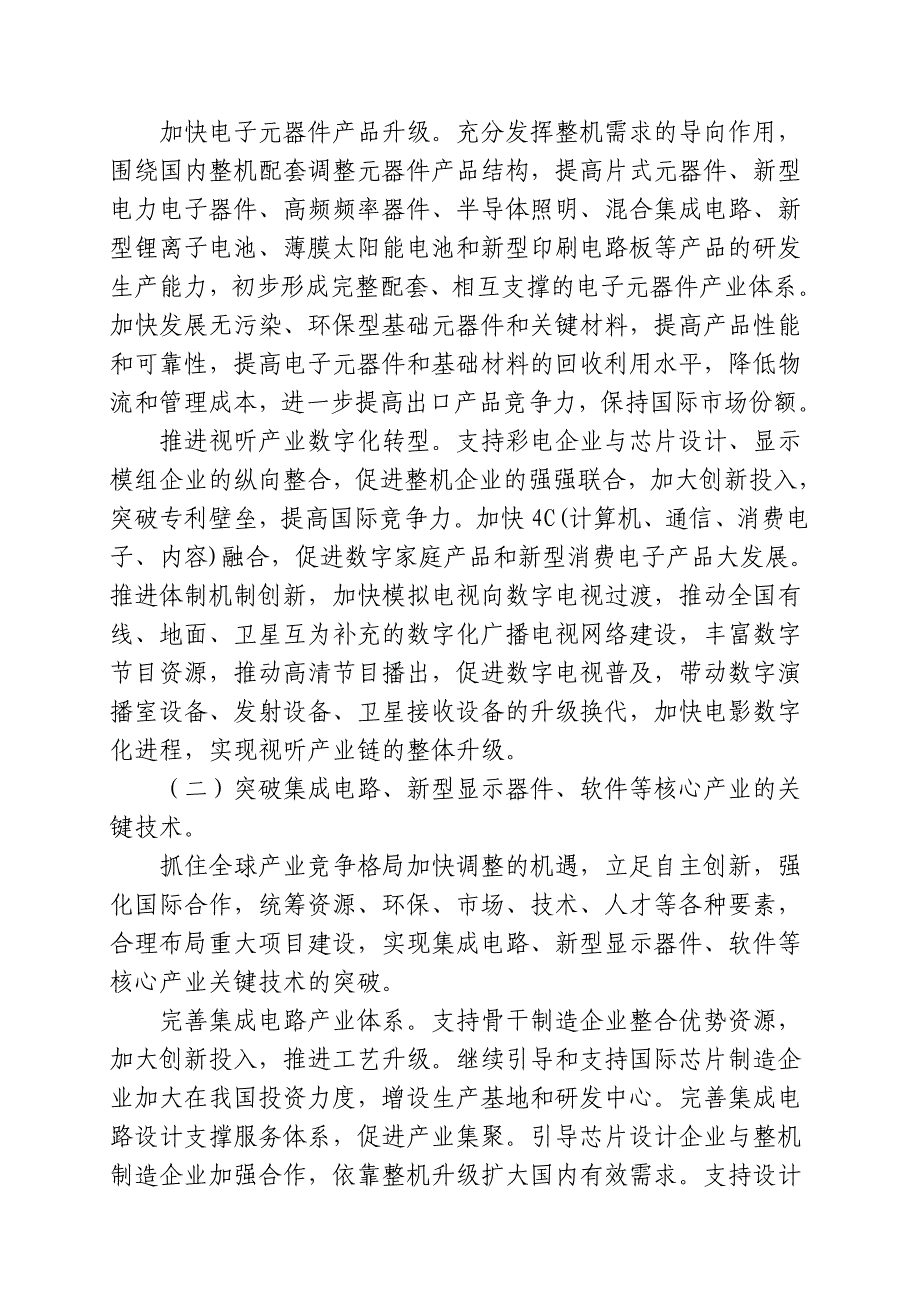 加快电子元器件产品升级。充分发挥整机需求的导向作用，
围绕国内整机配套调整元器件产品结构，提高片式元器件、新型
电力电子器件、高频频率器件、半导体照明、混合集成电路、新
型锂离子电池、薄膜太阳能电池和新型印刷电路板等产品的研发
生产能力，初步形成完整配套、相互支撑的电子元器件产业体系。
加快发展无污染、环保型基础元器件和关键材料，提高产品性能
和可靠性，提高电子元器件和基础材料的回收利用水平，降低物
流和管理成本，进一步提高出口产品竞争力，保持国际市场份额。
推进视听产业数字化转型。支持彩电企业与芯片设计、显示
模组企业的纵向整合，促进整机企业的强强联合，加大创新投入，
突破专利壁垒，提高国际竞争力。加快 4C(计算机、通信、消费电
子、内容)融合，促进数字家庭产品和新型消费电子产品大发展。
推进体制机制创新，加快模拟电视向数字电视过渡，推动全国有
线、地面、卫星互为补充的数字化广播电视网络建设，丰富数字
节目资源，推动高清节目播出，促进数字电视普及，带动数字演
播室设备、发射设备、卫星接收设备的升级换代，加快电影数字
化进程，实现视听产业链的整体升级。
（二）突破集成电路、新型显示器件、软件等核心产业的关
键技术。
抓住全球产业竞争格局加快调整的机遇，立足自主创新，强
化国际合作，统筹资源、环保、市场、技术、人才等各种要素，
合理布局重大项目建设，实现集成电路、新型显示器件、软件等
核心产业关键技术的突破。
完善集成电路产业体系。支持骨干制造企业整合优势资源，
加大创新投入，推进工艺升级。继续引导和支持国际芯片制造企
业加大在我国投资力度，增设生产基地和研发中心。完善集成电
路设计支撑服务体系，促进产业集聚。引导芯片设计企业与整机
制造企业加强合作，依靠整机升级扩大国内有效需求。支持设计